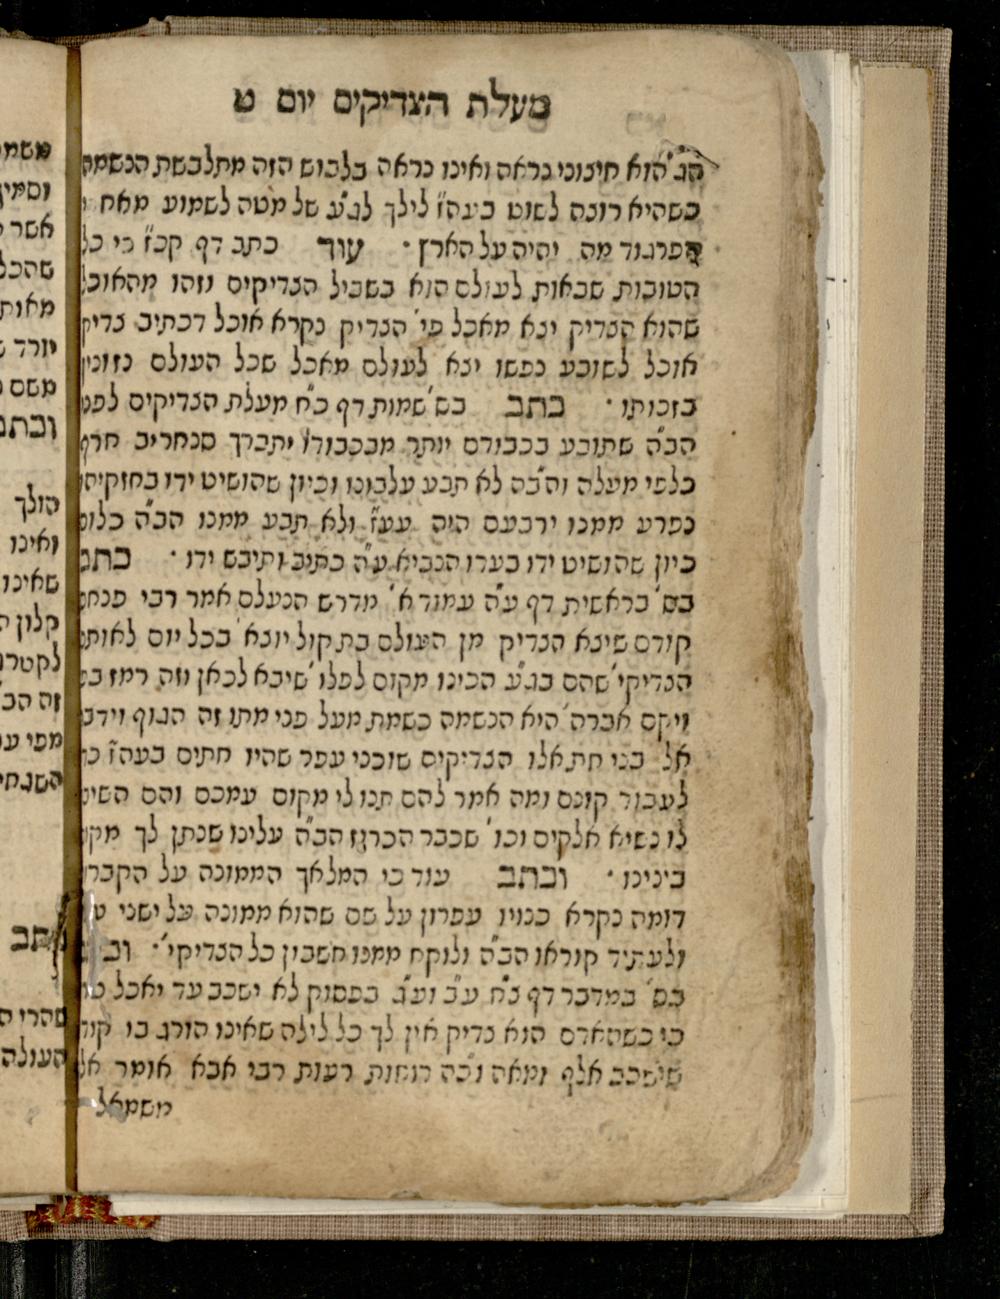 מעלת הצדיקים יום ט
הג' הוא חיצוני נראה ואינו נראה בלבוש הזה מתלבשת הנשמה
כשהיא רוצה לשוט בעה"ז לילך לג"ע של מטה לשמוע מאח
הפרגוד מה יהיה על הארץ · עוד כתב דף קכ"ז כי כל
הטובות שבאות לעולם הוא בשביל הצדיקים וזהו מהאוכל
שהוא הצדיק יצא מאכל פי' הצדיק נקרא אוכל דכתיב צדיק
אוכל לשובע נפשו יצא לעולם מאכל שכל העולם נזונין
בזכותו · כתב בס' שמות דף כ"ח מעלת הצדיקים לפני
הב"ה שתובע בכבודם יותר מבכבודו יתברך סנחריב חרף
כלפי מעלה והב"ה לא תבע עלבונו וכיון שהושיט ידו בחזקיהו
נפרע ממנו ירבעם היה עע"ז ולא תבע ממנו הב"ה כלום
כיון שהושיט ידו בעדו הנביא ע"ה כתיב ותיבש ידו · כתב
בס' בראשית דף ע"ה עמוד א' מדרש הנעלם אמר רבי פנחס
קודם שיצא הצדיק מן העולם בת קול יוצא בכל יום לאותם
הצדיקי' שהם בג"ע הכינו מקום לפלו' שיבא לכאן וזה רמז בפ
ויקם אברה' היא הנשמה כשמת מעל פני מתו זה הגוף וידבר
אל בני חת אלו הצדיקים שוכני עפר שהיו חתים בעה"ז כד
לעבוד קונם ומה אמר להם תנו לי מקום עמכם והם השיבו
לו נשיא אלקים וכו' שכבר הכרוז הב"ה עלינו שנתן לך מקום
בינינו · וכתב עוד כי המלאך הממונה על הקברו
דומה נקרא כנויו עפרון על שם שהוא ממונה על ישני
ולעתיד קוראו הב"ה ולוקח ממנו חשבון כל הצדיקי' ·
בס' במדבר דף כ"ח ע"ב וע"ג בפסוק לא ישכב עד יאכל טרף
כי כשהאדם הוא צדיק אין לך כל לילה שאינו הורג בו קודם
שישכב אלף ומאה וכ"ה רוחות רעות רבי אבא אומר אלף
משמאל
משמ
וסמין
אשר
שהכל
מאות
יורד
משם
וכתב
הולך
ואינו
שאינו
קלון
לקטר
זה הכ
מפי
השגחי
כתב
שהרי
העולה